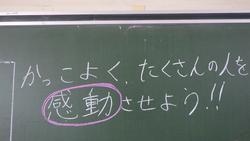 かっこよく、たくさんの人を
感動させよう!!